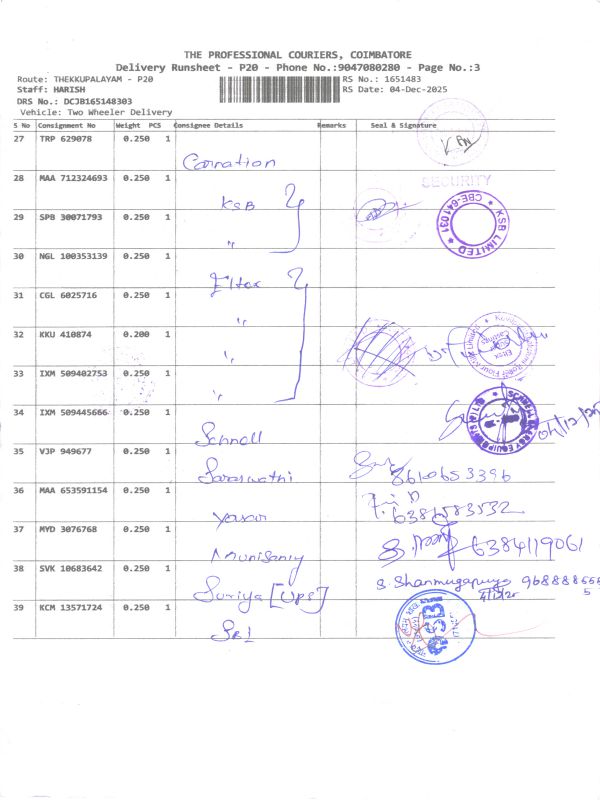 THE PROFESSIONAL COURIERS, COIMBATORE
Delivery Runsheet - P20 - Phone No.:9047080280 - Page No.:3
Route: THEKKUPALAYAM - P20 RS No.: 1651483
Staff: HARISH RS Date: 04-Dec-2025
DRS No.: DCJB165148303
Vehicle: Two Wheeler Delivery
S No Consignment No Weight PCS Consignee Details Remarks Seal & Signature
27 TRP 629078 0.250 1
Carnation
28 MAA 712324693 0.250 1
SECURITY
KSB
KSB LIMITED CBE-641031
29 SPB 30071793 0.250 1
"
30 NGL 100353139 0.250 1
Eltex
31 CGL 6025716 0.250 1
"
32 KKU 410874 0.200 1
"
33 IXM 509402753 0.250 1
"
34 IXM 509445666 0.250 1
Schnell 04/12/25
35 VJP 949677 0.250 1
Saraswathi 8610653396
36 MAA 653591154 0.250 1
Yasar 6381583532
37 MYD 3076768 0.250 1
Munisamy 6384119061
38 SVK 10683642 0.250 1
Suriya [UPS]
4/12/25
39 KCM 13571724 0.250 1
SBI
SBI